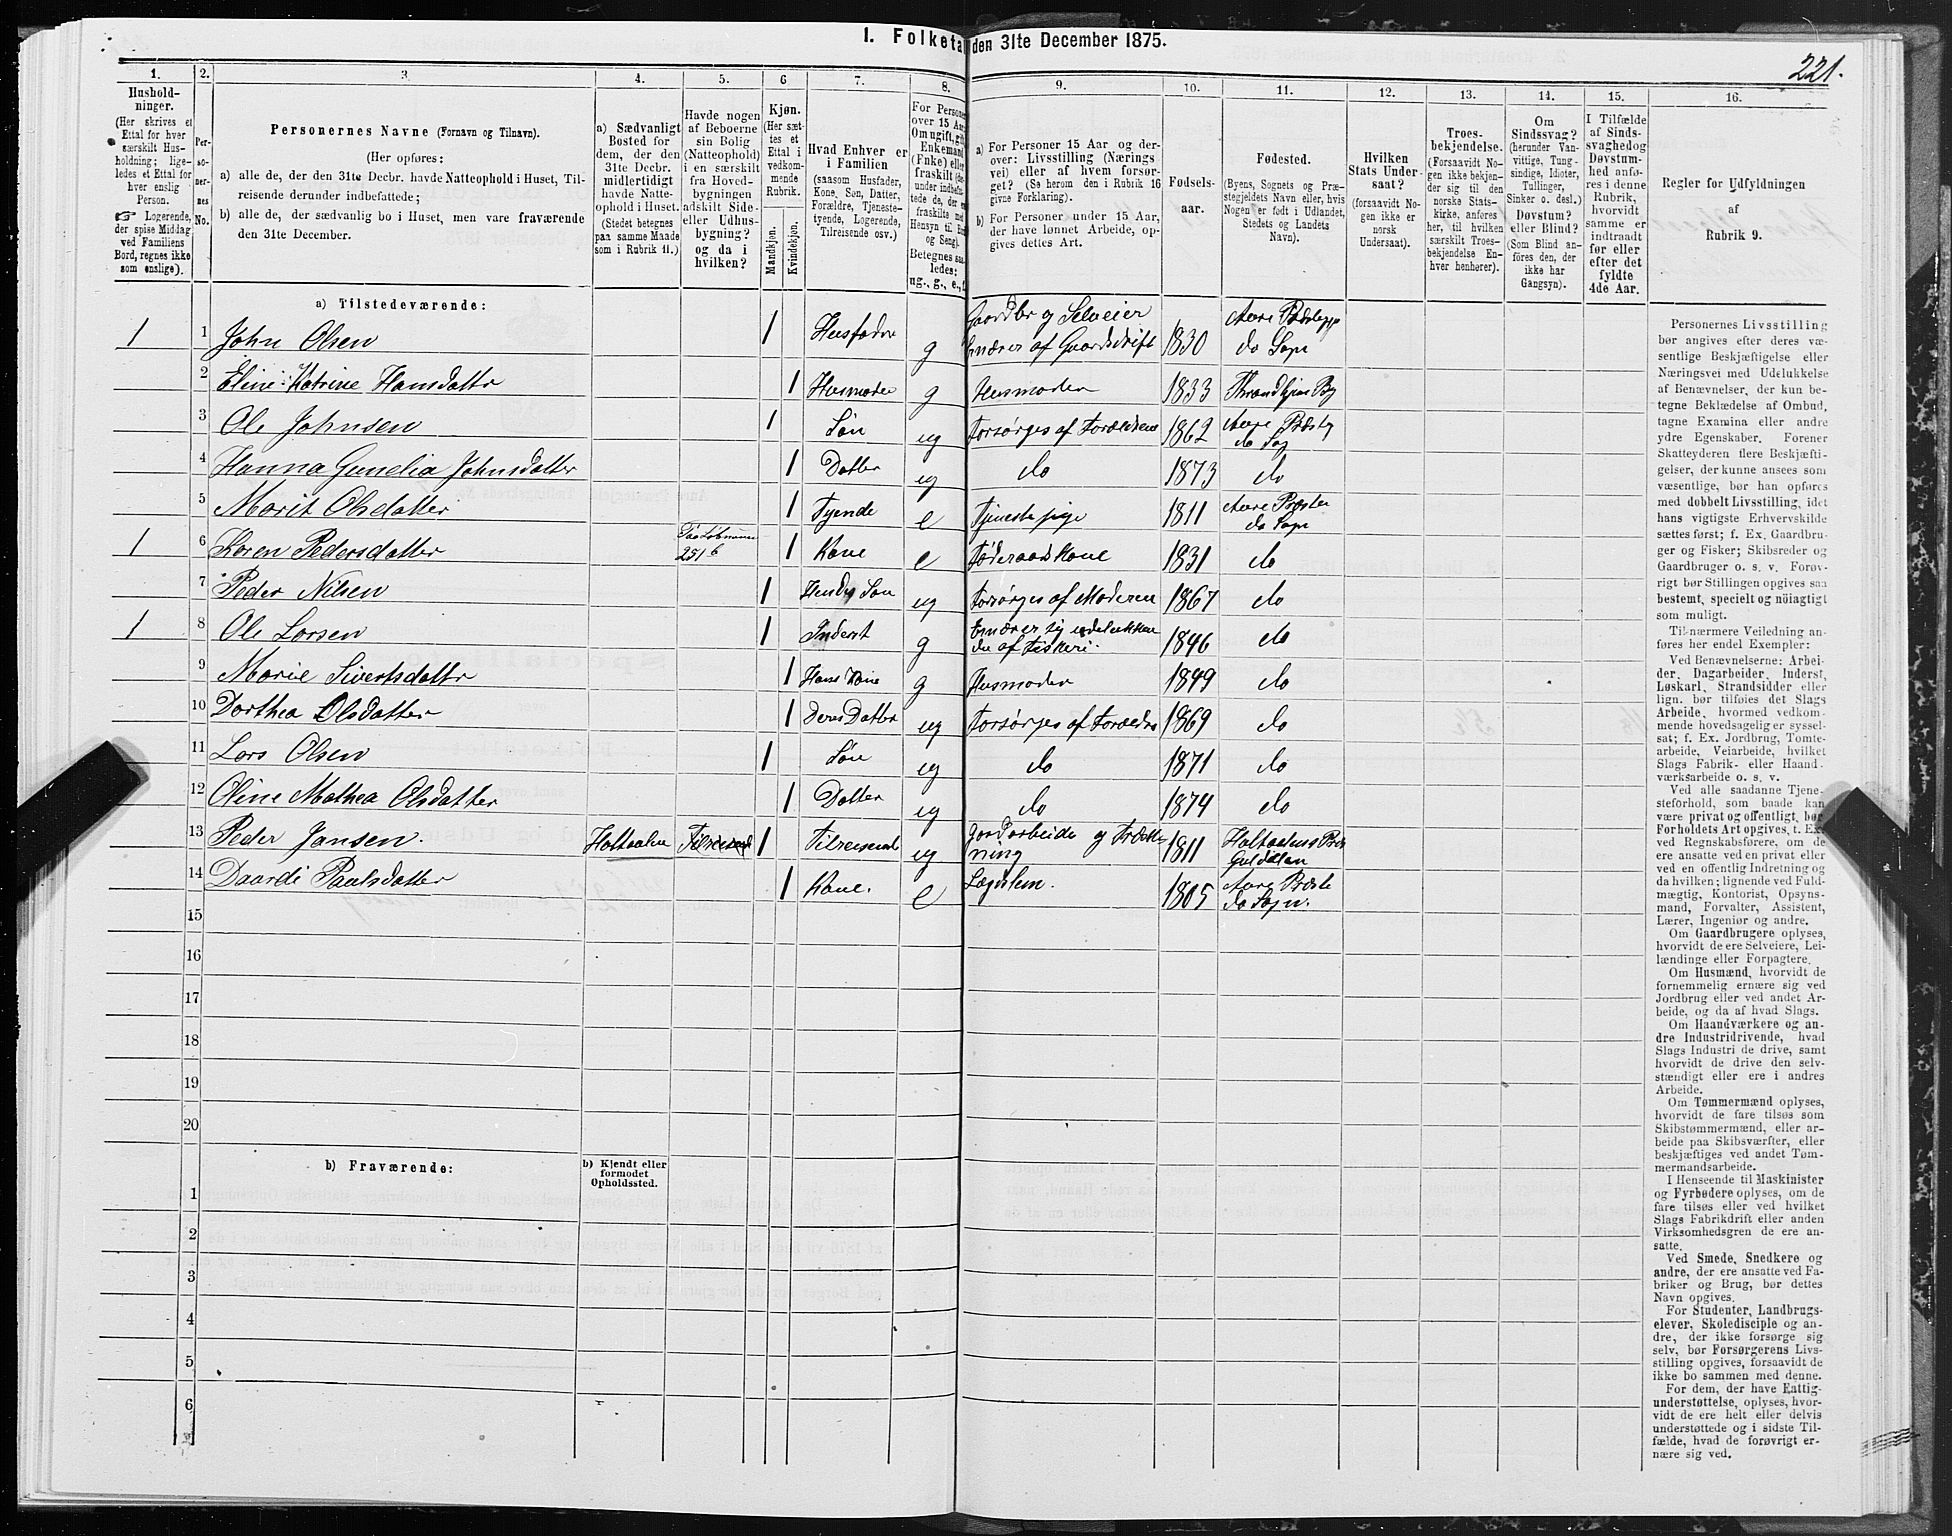 1. Folketa den 31te December 1875.
221.
1.
Hushold-
ninger.
(Her skrives et
Ettal for hver
særskilt Hus-
holdning; lige-
ledes et Ettal for
hver enslig
Person.
☞ Logerende,
der spise Middag
ved Familiens
Bord, regnes ikke
som enslige).
2.
Per-
so-
ner-
nes
No.
3
Personernes Navne (Fornavn og Tilnavn).
(Her opføres:
a) alle de, der den 31te Decbr. havde Natteophold i Huset, Til-
reisende derunder indbefattede;
b) alle de, der sædvanlig bo i Huset, men vare fraværende
den 31te December.
4.
a) Sædvanligt
Bosted for
dem, der den
31te Decbr.
midlertidigt
havde Natte-
ophold i Huset.
(Stedet betegnes
paa samme Maade
som i Rubrik 11.)
5.
Havde nogen
af Beboerne
sin Bolig
(Natteophold)
i en særskilt
fra Hoved-
bygningen
adskilt Side-
eller Udhus-
bygning?
og da i
hvilken?
6
Kjøn.
(Her sæt-
tes et
Ettal i
vedkom-
mende
Rubrik.
Mandkjøn.
Kvindekjøn.
7.
Hvad Enhver er
i Familien
(saasom Husfader,
Kone, Søn, Datter,
Forældre, Tjeneste-
tyende, Logerende,
Tilreisende osv.)
8.
For Persone
over 15 Aar
Om ugift, gift
Enkemand
(Enke) eller
fraskilt
under indbefat-
tede, de, der ere
fraskilte med
Hensyn til Bord
og Seng).
Betegnes saa-
ledes:
ug., g., e., f.
9.
a) For Personer 15 Aar og der-
over: Livsstilling (Nærings
vei) eller af hvem forsør-
get? (Se herom den i Rubrik 16
givne Forklaring).
b) For Personer under 15 Aar,
der have lønnet Arbeide, op-
gives dettes Art.
10.
Fødsels-
aar.
11.
Fødested.
(Byens, Sognets og Præ-
stegjeldets Navn eller, hvis
Nogen er født i Udlandet,
Stedets og Landets
Navn).
12.
Hvilken
Stats Under-
saat?
(forsaavidt No-
gen ikke er
norsk
Undersaat).
13.
Troes-
bekjendelse.
(Forsaavidt No-
gen ikke bekjen-
der sig til den
norske Stats-
kirke, anføres
her, til hvilken
særskilt Troes-
bekjendelse En-
hver henhører).
14.
Om
Sindssvag?
(herunder Van-
vittige, Tung-
sindige, Idioter,
Tullinger,
Sinker o. desl.)
Døvstum?
eller Blind?
(Som Blind an-
føres den, der
ikke har
Gangsyn).
15.
I Tilfælde
af Sinds-
svaghed og
Døvstum-
hed anfø-
res i denne
Rubrik,
hvorvidt
samme er
indtraadt
før eller
efter det
fyldte
4de Aar.
16.
Regler for Udfyldningen
af
Rubrik 9.
a) Tilstedeværende:
1 1 John Olsen 1 Husfader g Gaardbr og Selveier Ernærer af Gaardsdrift 1830 Aure Præstegj do Sogn
2 Eline Katrine Hansdattr 1 Husmoder g Husmoder 1833 Throndhjem By
3 Ole Johnsen 1 Søn ug Forsørges af Forældrene 1862 Aure Præstg do Sog
4 Hanna Gunelia Johnsdatter 1 Datter ug do 1873 do
5 Marit Olsdatter 1 Tyende e Tjenestepige 1811 Aure Præste do Sogn
1 6 Karen Pedersdatter Paa Løbnummer 251 b 1 Kone e Føderaadskone 1831 do
7 Peder Nilsen 1 Hendes Søn ug Forsørges af Moderen 1867 do
1 8 Ole Larsen 1 Inderst g Ernærer sig udelukken de af Fiskeri. 1846 do
9 Marie Sivertsdattr 1 Hans Kone g Husmoder 1849 do
10 Dorthea Olsdatter 1 Deres Datter ug Forsørges af Forældre 1869 do
11 Lars Olsen 1 Søn ug do 1871 do
12 Oline Mathea Olsdatter 1 Datter ug do 1874 do
13 Peder Jansen. Holtaalen Tilreisend 1 Tilreisend ug 1811
14 Paulsdatter 1 Kone. e Lægslem. 1805 Aure Præste do Sogn.
15
16
17
18
19
20
b) Fraværende:
b) Kjendt eller
formodet
Opholdssted.
1
2
3
4
5
6
Personernes Livsstilling
bør angives efter deres væ-
sentlige Beskjæftigelse eller
Næringsvei med Udelukkelse
af Benævnelser, der kun be-
tegne Beklædelse af Ombud,
tagne Examina eller andre
ydre Egenskaber. Forener
Skatteyderen flere Beskjæfti-
gelser, der kunne ansees som
væsentlige, bør han opføres
med dobbelt Livsstilling, idet
hans vigtigste Erhvervskilde
sættes først; f. Ex. Gaardbru-
ger og Fisker; Skibsreder og
Gaardbruger o. s. v. Forøv-
rigt bør Stillingen opgives saa
bestemt, specielt og nöiagtigt
som muligt.
Til nærmere Veiledning an-
føres her endel Exempler:
Ved Benævnelserne: Arbei-
der, Dagarbeider, Inderst,
Løskarl, Strandsidder eller
lign. bør tilføies det Slags
Arbeide, hvormed vedkom-
mende hovedsagelig er syssel-
sat; f. Ex. Jordbrug, Tomte-
arbeide, Veiarbeide, hvilket
Slags Fabrik- eller Haand-
værksarbeide o. s. v.
Ved alle saadanne Tjene-
steforhold, som baade kan
være privat og offentligt, bør
Forholdets Art opgives, t. Ex.
ved Regnskabsførere, om de
ere ansatte ved en privat eller
ved en offentlig Indretning og
da hvilken; lignende ved Fuld-
mægtig, Kontorist, Opsyns-
mand, Forvalter, Assistent,
Lærer, Ingeniør og andre.
Om Gaardbrugere oplyses,
hvorvidt de ere Selveiere, Lei-
lændinge eller Forpagtere.
Om Husmænd, hvorvidt de
fornemmelig ernære sig ved
Jordbrug eller ved andet Ar-
beide, og da af hvad Slags.
Om Haandværkere og an-
dre Industridrivende, hvad
Slags Industri de drive, samt
hvorvidt de drive den selv-
stændigt eller ere i andres
Arbeide.
Om Tømmermænd oplyses,
hvorvidt de fare tilsøs som
Skibstømmermænd, eller ar-
beide paa Skibsværfter, eller
beskjæftiges ved andet Tøm-
mermandsarbeide.
I Henseende til Maskinister
og Fyrbødere oplyses, om de
fare tilsøs eller ved hvilket
Slags Fabrikdrift eller anden
Virksomhedsgren de ere an-
satte.
Ved Smede, Snedkere og
andre, der ere ansatte ved Fa-
briker og Brug, bør dettes
Navn opgives.
For Studenter, Landbrugs-
elever, Skoledisciple og an-
dre, der ikke forsørge sig
selv, bør Forsørgerens Livs-
stilling opgives, forsaavidt de
ikke bo sammen med denne.
For dem, der have Fattig-
understøttelse, oplyses, hvor-
vidt de ere helt eller delvis
understøttede og i sidste Til-
fælde, hvad de forøvrigt er-
nære sig ved.